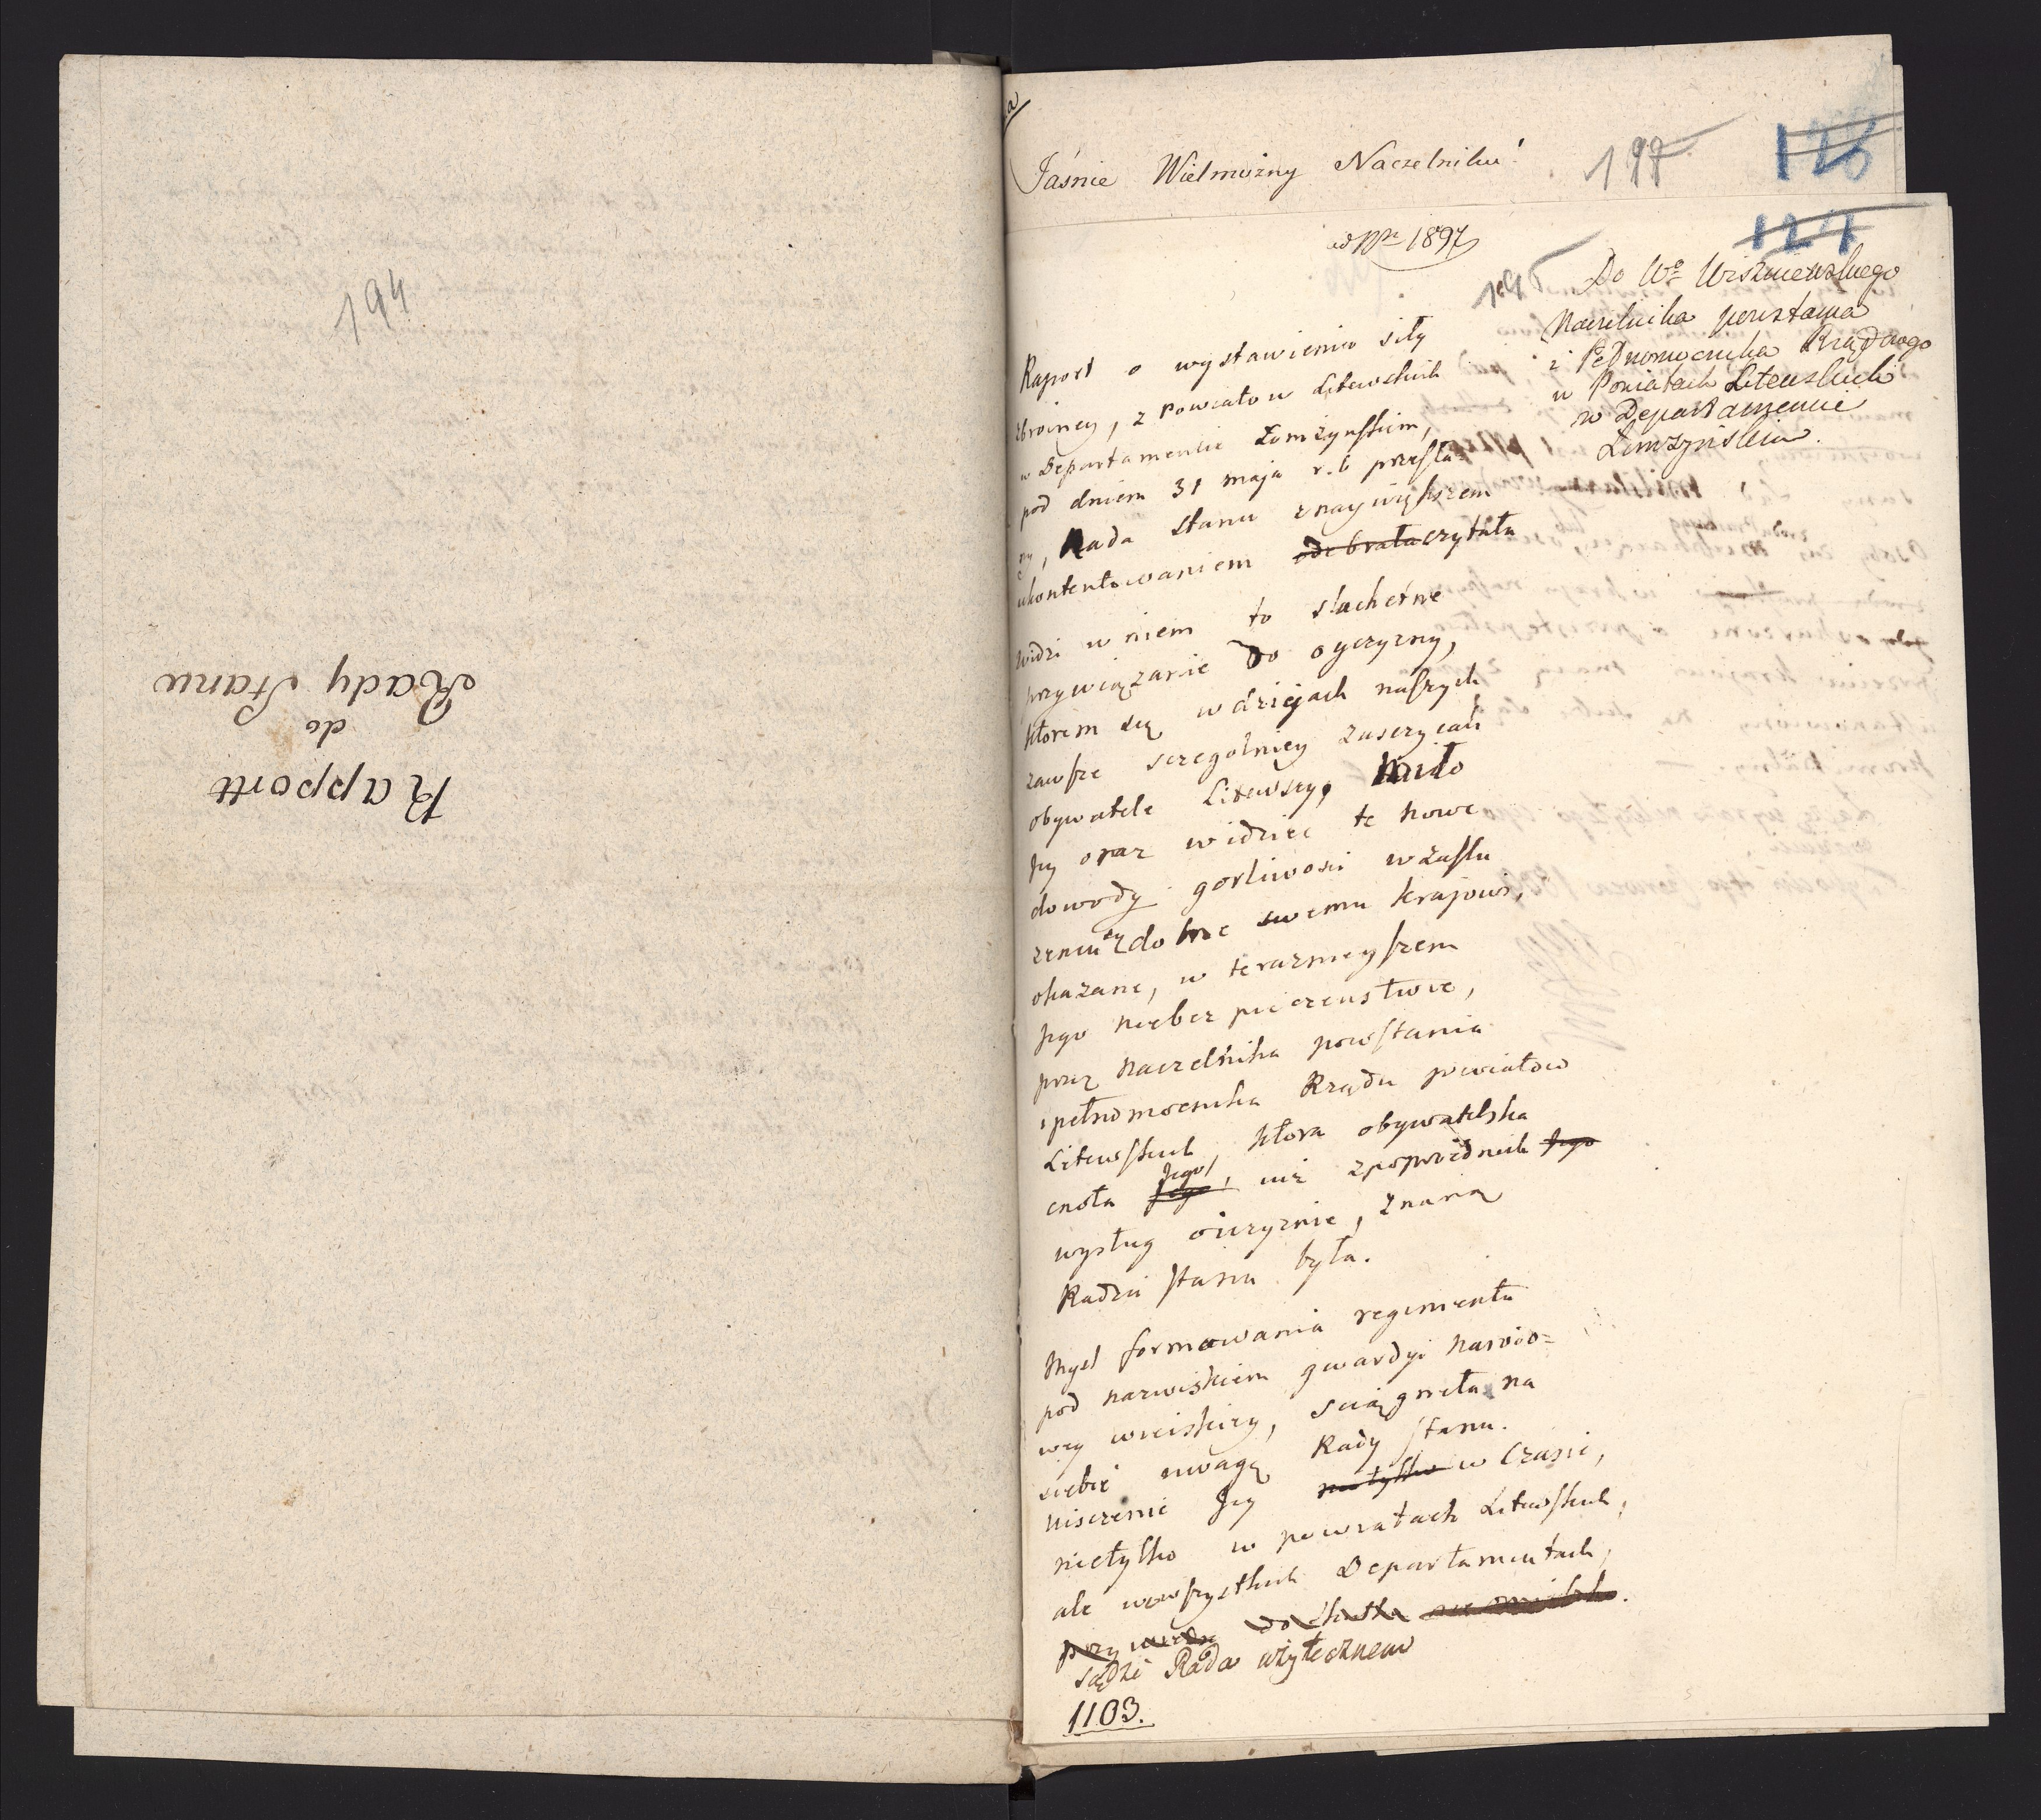 194
Rapport
do
Rady Stanu
Jaśnie Wielmożny Naczelniku!
197
126
124
ad Nrm 1897
195
Do Wo Wiszniewskiego
Naczelnika powstania
i Pełnomocnika Rządowego
w Powiatach Litewskich
w Departamencie
Łomżyńskim.
Raport o wystawieniu siły
zbroiney, z Powiatow Litewskich
w Departamencie Łomżynskim,
pod dniem 31 maja r. b przesła=
ny, Rada Stanu z naywiększem
ukontentowaniem odebrała czytała
widzi w niem to slachetne
przywiązanie do oyczyzny,
ktorem się w dziejach naszych
zawsze szczegolniey zaszczycali
obywatele Litewscy, miło
Jey oraz widziec te nowe
dowody gorliwosci w zasłu
zeniu się dobrze swemu krajowi,
okazane, w terazneyszem
Jego niebezpieczenstwie,
przez Naczelnika powstania
i pełnomocnika Rządu powiatow
Litewskich, ktora obywatelska
cnota Jego Jego, iuż z poprzednich Jego
wysług oiczyznie, znaną
Radzie Stanu była.
Mysl formowania regimentu
pod nazwiskiem gwardyi narodo=
wey wieiskiey, sciągneła na
siebie uwagę Rady Stanu.
Uiszczenie Jey nietylko w czasie,
nietylko w powiatach Litewskich,
ale wewszystkich Departamentach,
przy do skutku
sądzi Rada użytecznem
1103.